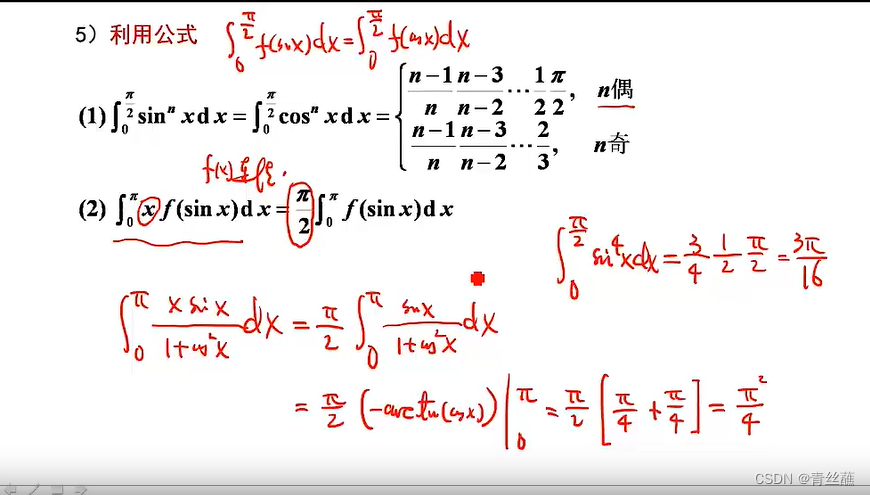 5）利用公式 ∫₀^{π/2} f(sinx)dx = ∫₀^{π/2} f(cosx)dx
(1) ∫₀^{π/2} sinⁿ x d x = ∫₀^{π/2} cosⁿ x d x = { (n−1)/n (n−3)/(n−2) ⋯ 1/2 π/2, n偶
(n−1)/n (n−3)/(n−2) ⋯ 2/3, n奇
f(x)连续.
(2) ∫₀^π x f(sin x)d x = π/2 ∫₀^π f(sin x)d x
∫₀^{π/2} sin⁴xdx = 3/4 1/2 π/2 = 3π/16
∫₀^π (x sinx)/(1+cos²x) dx = π/2 ∫₀^π sinx/(1+cos²x) dx
= π/2 (−arctan(cosx)) |₀^π = π/2 [π/4 + π/4] = π²/4
CSDN @青丝蘸